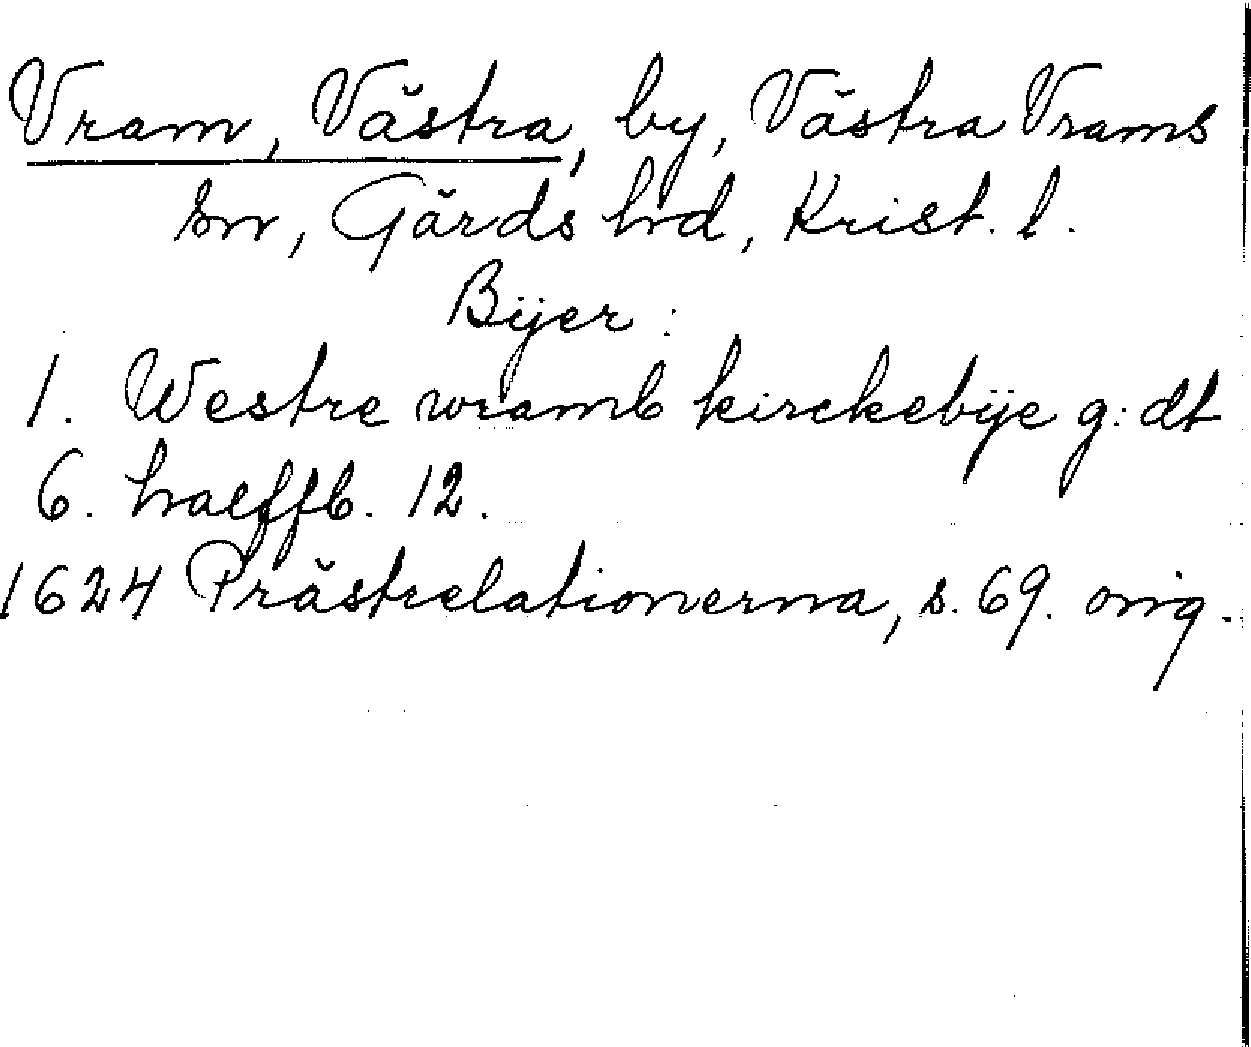 Vram, Västra, by, Västra Vrams
sn, Gärds hd, Krist. l.
Bÿer:
1. Westre wramb kirckebÿe g: dt
6. halffb. 12.
1624 Prästrelationerna, s. 69. orig.